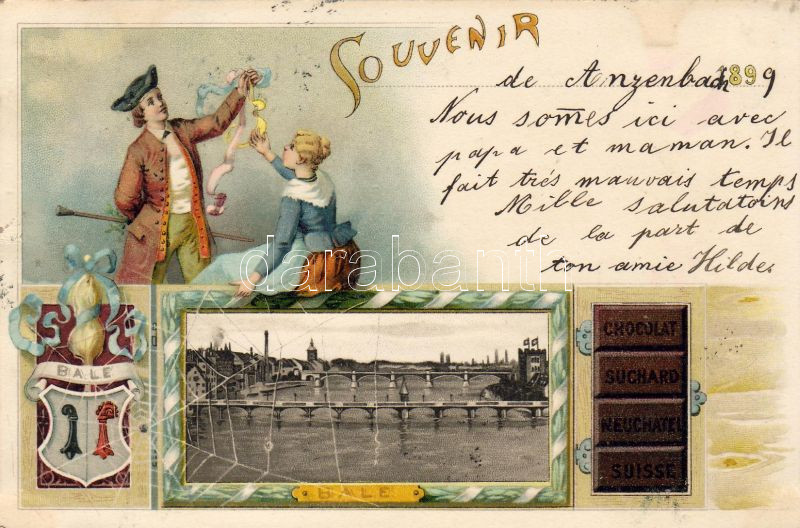 SOUVENIR
de Anzenbach 1899
Nous som̄es ici avec
papa et maman. Il
fait trés mauvais temps
Mille salutatoins
de la part de
ton amie Hildes
darabanth
BALE
CHOCOLAT
SUCHARD
NEUCHATEL
SUISSE
BALE